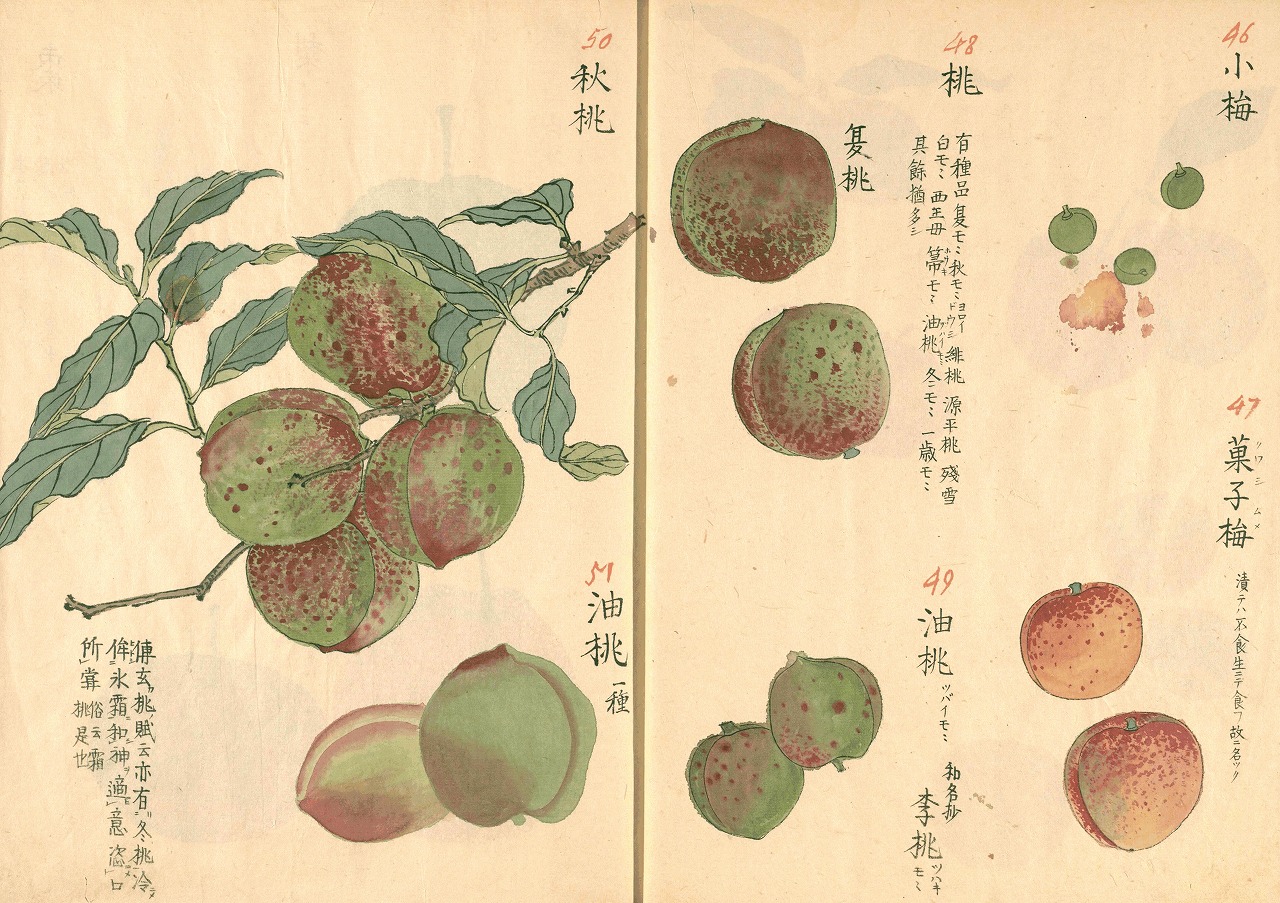 46
小梅
47
菓子梅
クワシムメ
漬テハ不食生ニテ食フ故ニ名ツク
48
桃
有種品夏モミ秋モミ緋桃源平桃殘雪
白モミ西王母箒モミ油桃冬モミ一歳モミ
其餘猶多シ
夏桃
49
油桃
ツバイモミ
和名抄
李桃
ツハキモミ
50
秋桃
51
油桃一種
傅玄桃賦云亦有冬桃冷
侔氷霜和神適意恣口
所嘗俗云霜
桃是也